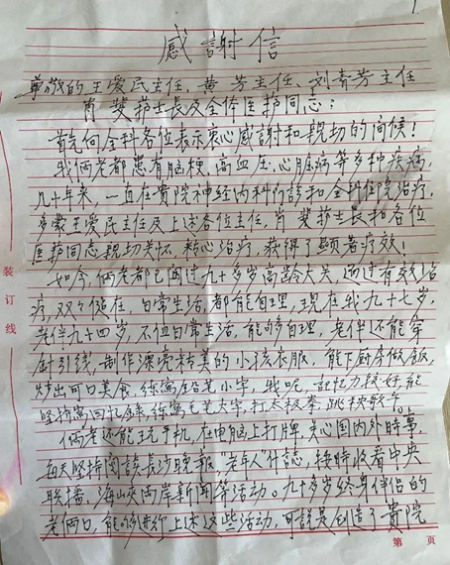 感謝信
尊敬的王爱民主任、黄芳主任、刘青芳主任
肖斐护士長及全体医护同志：
首先向全科各位表示衷心感謝和親切的问候！
我俩老都患有脑梗、高血压、心脏病等多种疾病，
几十年来，一直在貴院神经内科门诊和全科住院治疗，
多蒙王爱民主任及上述各位主任，肖斐护士長和各位
医护同志親切关怀，精心治疗，获得了顯著疗效！
如今俩老都已闯过九十多岁高龄大关，通过有效治
疗，双双健在，日常生活，都能自理，現在我九十七岁，
老伴九十四岁，不但日常生活，能够自理，老伴还能穿
針引线，制作漂亮精美的小孩衣服，能下厨房做飯
炒出可口美食，练寫铅笔小字，我呢，記忆力較好，能
坚持寫回忆录，练寫毛笔大字，打太极拳，跳秧歌午。
俩老还能玩手机，在电脑上打牌，关心国内外時事，
每天堅持阅读長沙晚報，"老年人"什誌，按時收看中央
联播，海峡两岸新闻等活动。九十多岁终身伴侣的
老俩口，能够进行上述这些活动，可説是创造了貴院
装订线
第 页